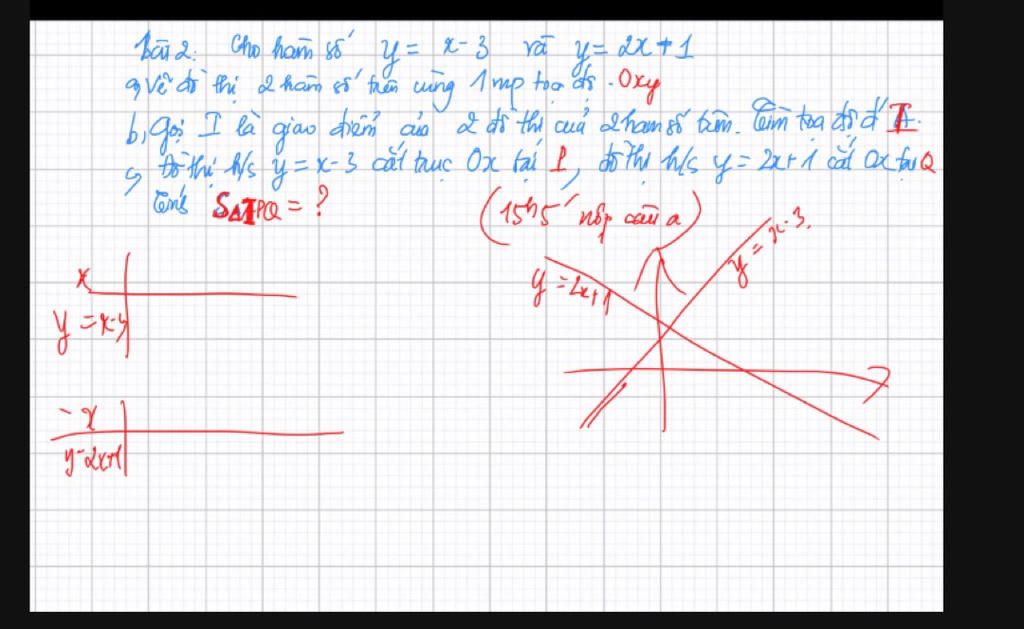 Bài 2: Cho hàm số y = x-3 và y = 2x+1
a, Vẽ đồ thị 2 hàm số trên cùng 1 mp tọa độ. Oxy
b, Gọi I là giao điểm của 2 đồ thị của 2 hàm số trên. Tìm tọa độ đ' I.
c, Đồ thị h/s y = x-3 cắt trục Ox tại P, đồ thị h/s y = 2x+1 cắt Ox tại Q
Tính SΔIPQ = ?
(15h5' nộp câu a)
y = x-3.
y = 2x+1
x
y = x-3
x
y=2x+1